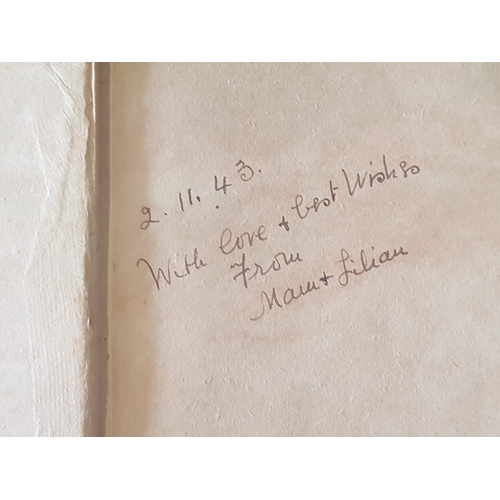 2.11.43.
With love + best Wishes
From
Mam + Lilian